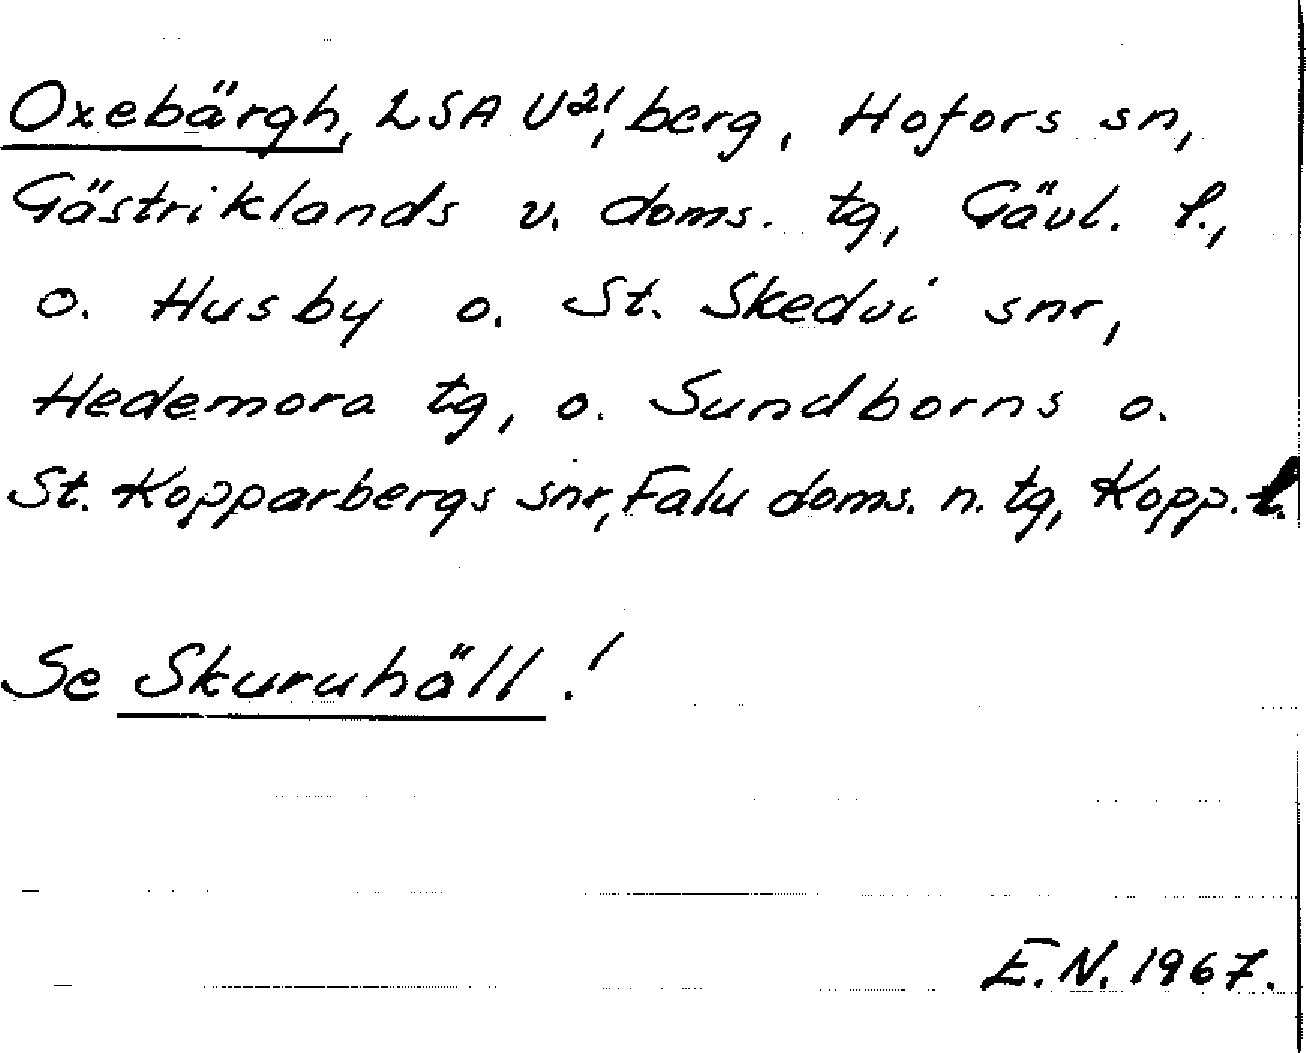 Oxebärgh, LSA U²¹, berg, Hofors sn,
Gästriklands v. doms. tg, Gävl. l.,
o. Husby o. St. Skedvi snr,
Hedemora tg, o. Sundborns o.
St. Kopparbergs snr, Falu doms. n. tg, Kopp. l.
Se Skuruhäll!
E.N. 1967.